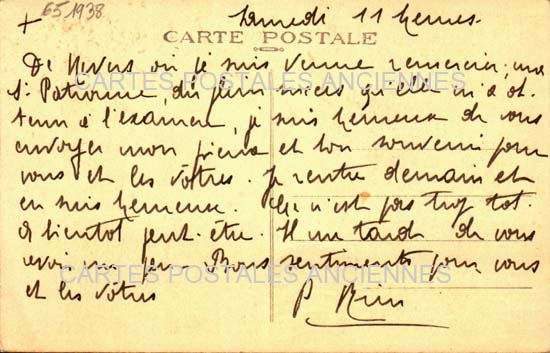 + 651938
Samedi 11 heures.
CARTE POSTALE
De Nevers où je suis venue remercier, ma
CARTES POSTALES ANCIENNES
St Patronne, du
m'a ob
tenu à l'examen, je suis heureux de vous
envoyer mon pieux et bon souvenir pour
vous et les vôtres. Je rentre demain et
en suis heureuse. Ce n'est pas trop tôt.
A bientôt peut-être. Il me tarde de vous
revoir un peu - Bons sentiments pour vous
CARTES POSTALES ANCIENNES
et les vôtres
P.